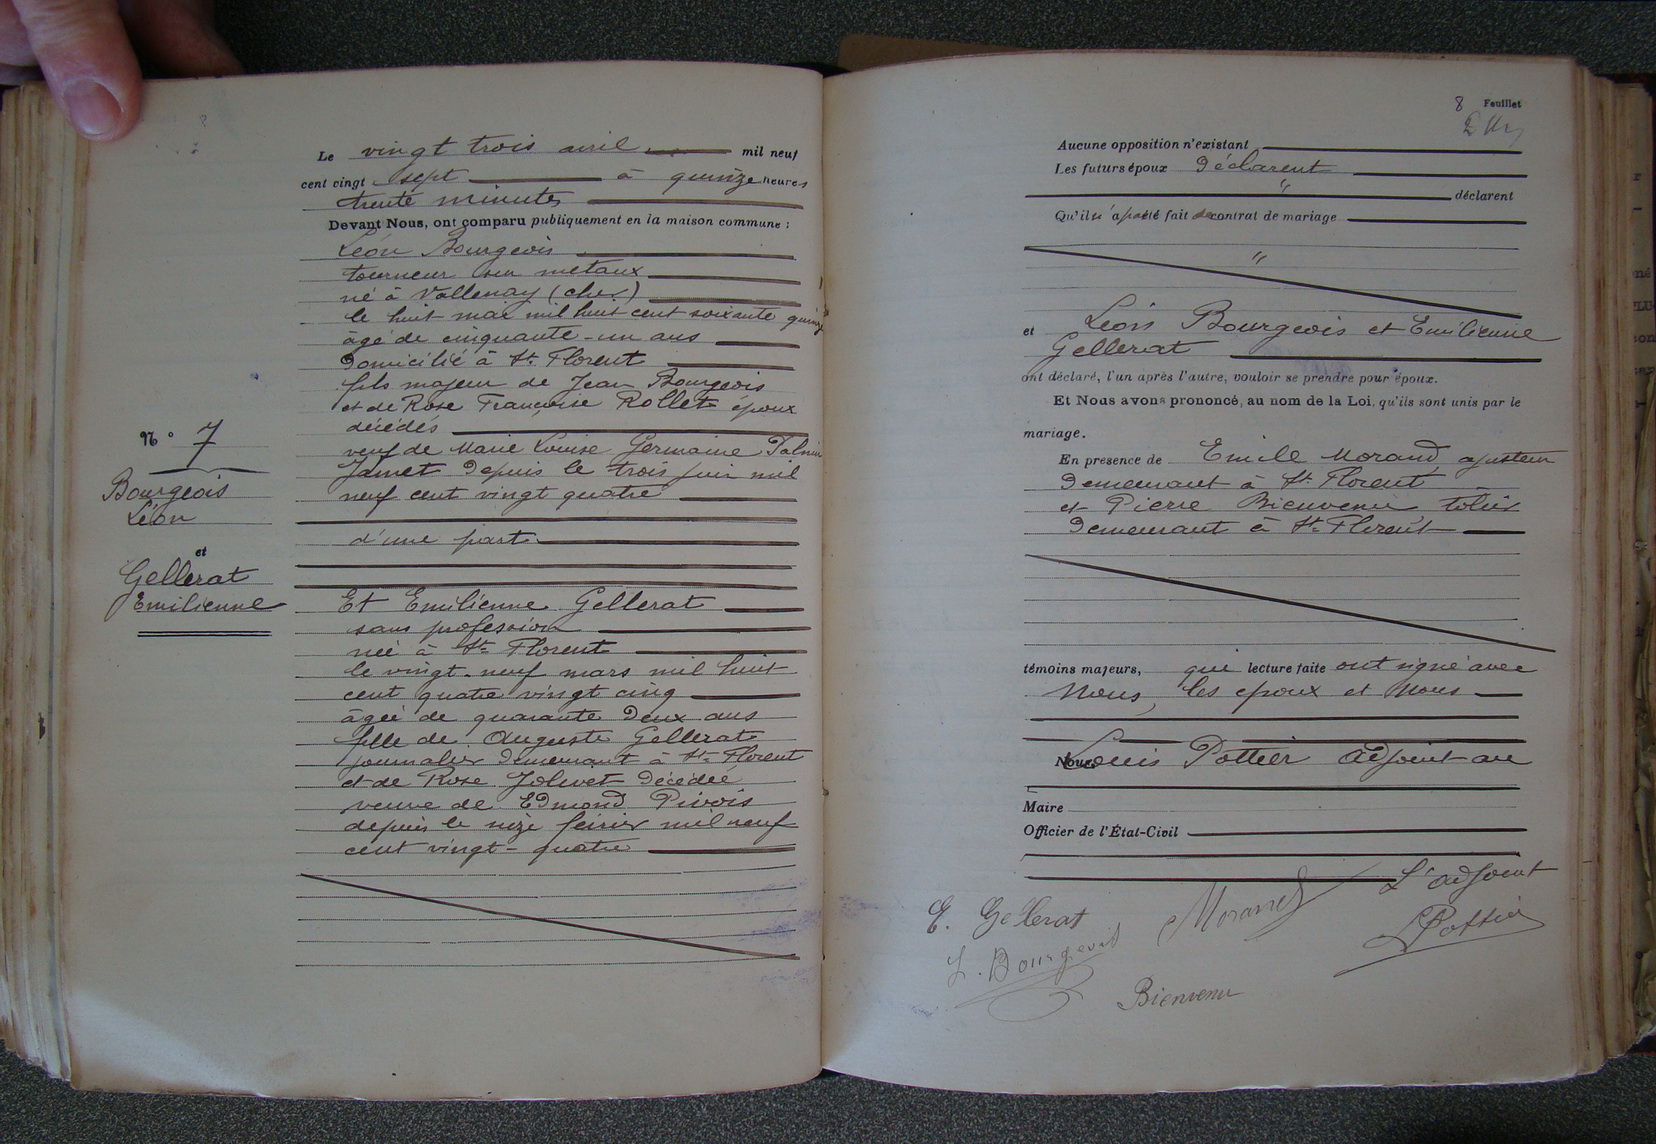 Le vingt trois avril mil neuf
cent vingt sept à quinze heures
trente minutes
Devant Nous, ont comparu publiquement en la maison commune :
Léon Bourgeois
tourneur sur metaux
né à Vallenay (cher)
le huit mai mil huit cent soixante quinze
âgé de cinquante-un ans
Domicilié à St Florent
fils majeur de Jean Bourgeois
et de Rose Françoise Rollet époux
décédés
veuf de Marie Louise Germaine
Jamet Depuis le trois juin mil
neuf cent vingt quatre
d'une part
N° 7
Bourgeois
Léon
et
Gellerat
Emilienne
Et Emilienne Gellerat
sans profession
née à St Florent
le vingt-neuf mars mil huit
cent quatre vingt cinq
âgée de quarante Deux ans
fille de Auguste Gellerat
journalier Demeurant à St Florent
et de Rose Jolivet Décédée
veuve de Edmond Pivois
depuis le février mil neuf
cent vingt-quatre
8 Feuillet
Aucune opposition n'existant
Les futurs époux Déclarent
" déclarent
Qu'il n'a pas été fait de contrat de mariage
"
et Léon Bourgeois et Emilienne
Gellerat
ont déclaré, l'un après l'autre, vouloir se prendre pour époux.
Et Nous avons prononcé, au nom de la Loi, qu'ils sont unis par le
mariage.
En présence de Emile Morand ajusteur
Demeurant à St Florent
et Pierre Bienvenu tolier
Demeurant à St Florent
témoins majeurs, qui lecture faite ont signé avec
Nous, les époux et Nous
Nous, Louis Pottier Adjoint au
Maire
Officier de l'État-Civil
L'adjoint
E. Gellerat
Morand
Pottier
L. Bourgeois
Bienvenu